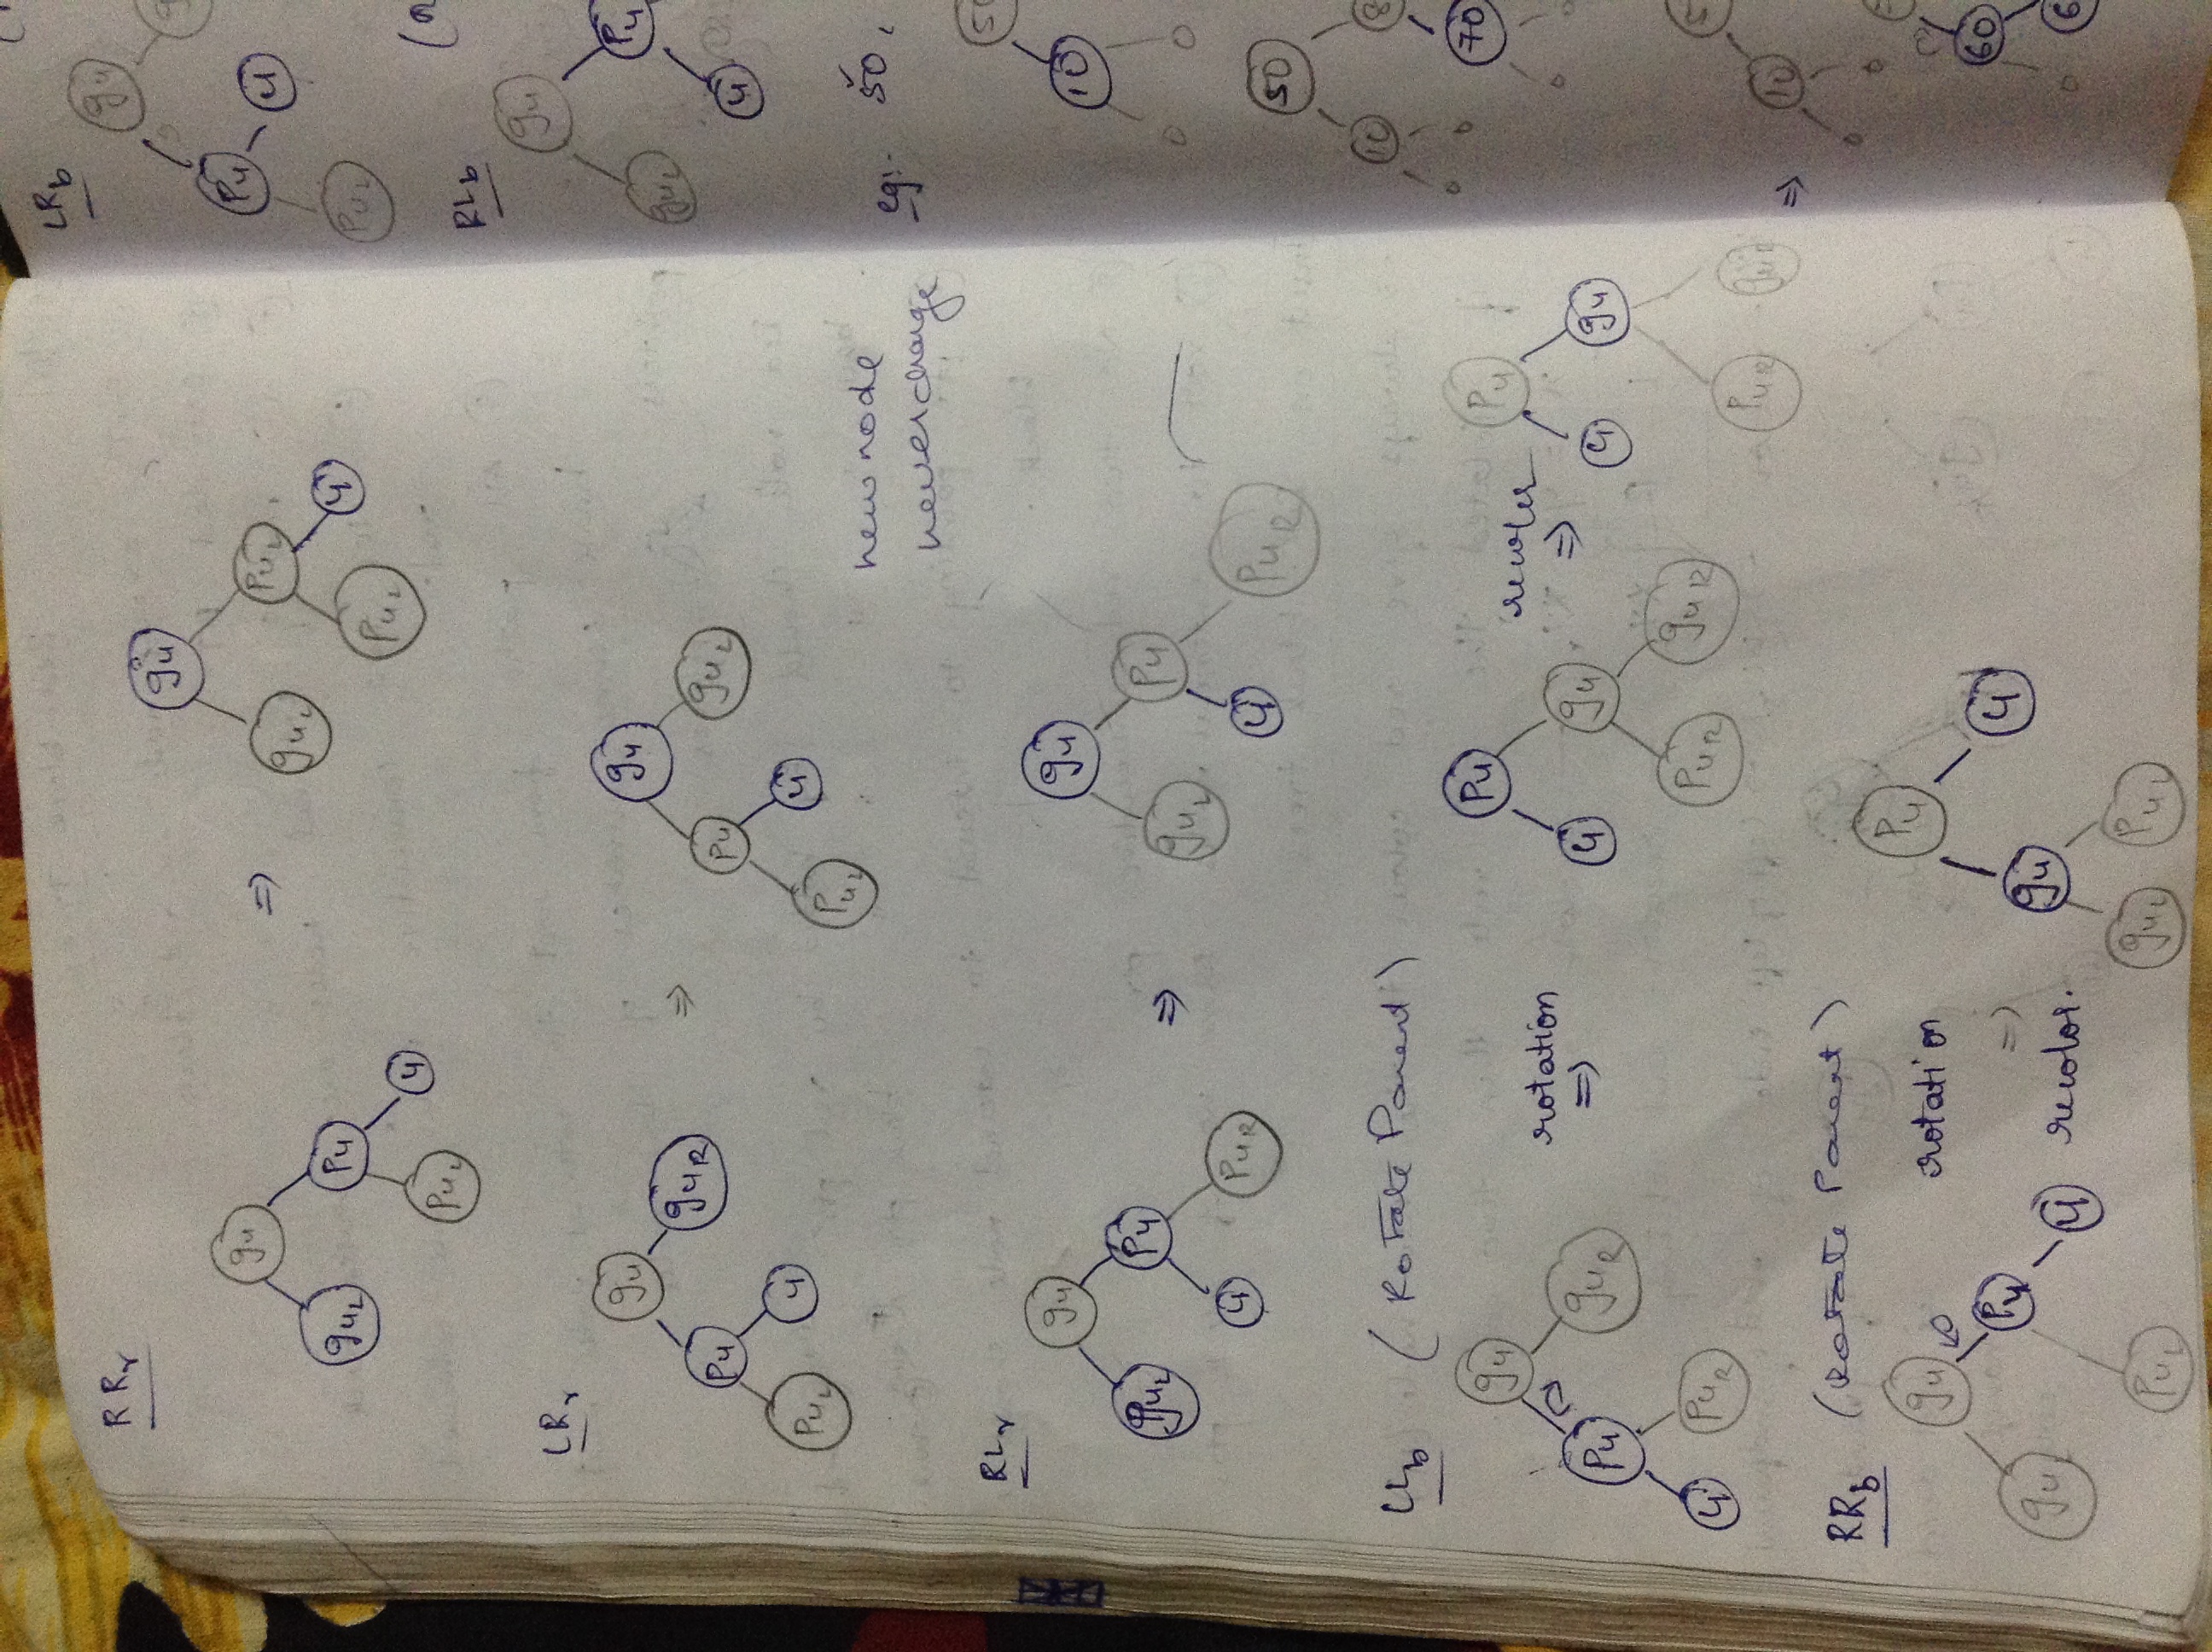 RRr
gu
guL
Pu
PuL
u
⇒
gu
guL
PuL
PuL
u
LRr
gu
Pu
guR
PuL
u
⇒
gu
Pu
guL
PuL
u
new node
never change
RLr
gu
guL
Pu
u
PuR
⇒
gu
guL
Pu
u
PuR
LLb (Rotate Parent)
gu
Pu
guR
u
PuR
rotation
⇒
Pu
u
gu
PuR
guR
recolor
⇒
Pu
u
gu
PuR
guR
RRb (Rotate Parent)
gu
guL
Pu
PuL
u
rotation
⇒
recolor.
Pu
gu
u
guL
PuL
LRb
gu
Pu
u
PuL
RLb
gu
guL
Pu
u
eg:- 50,
10
50
10
70
⇒
10
60